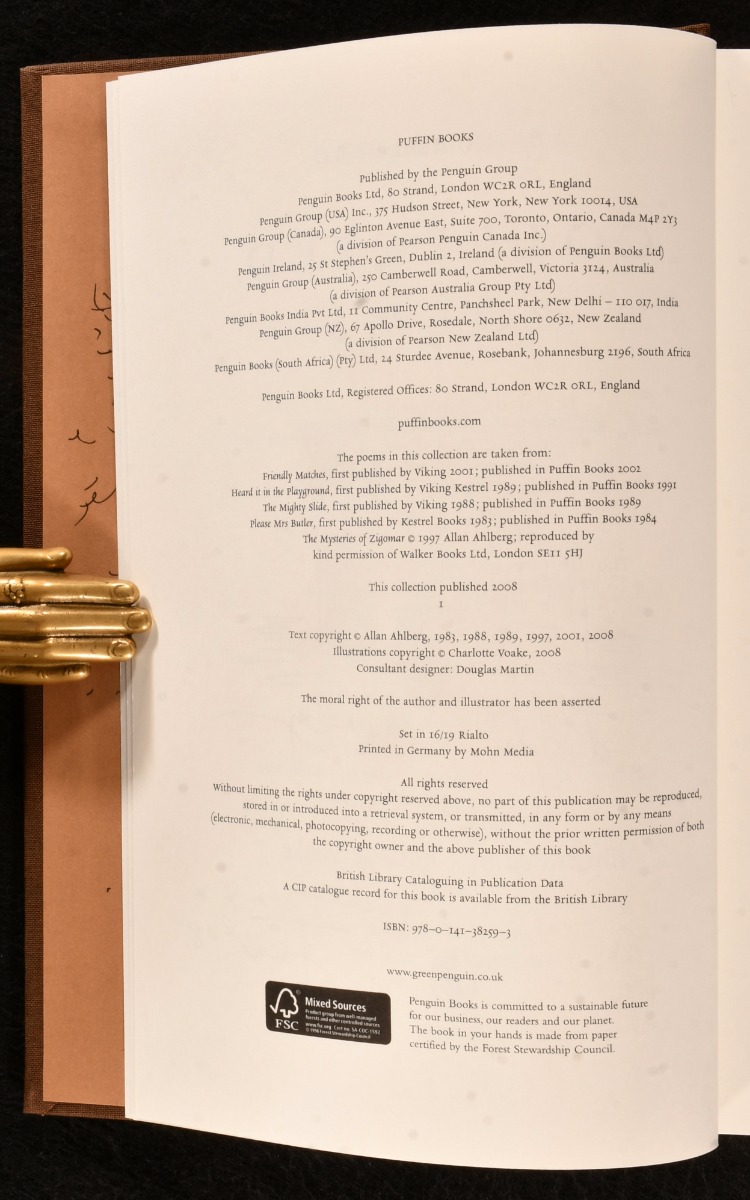 PUFFIN BOOKS
Published by the Penguin Group
Penguin Books Ltd, 80 Strand, London WC2R 0RL, England
Penguin Group (USA) Inc., 375 Hudson Street, New York, New York 10014, USA
Penguin Group (Canada), 90 Eglinton Avenue East, Suite 700, Toronto, Ontario, Canada M4P 2Y3
(a division of Pearson Penguin Canada Inc.)
Penguin Ireland, 25 St Stephen's Green, Dublin 2, Ireland (a division of Penguin Books Ltd)
Penguin Group (Australia), 250 Camberwell Road, Camberwell, Victoria 3124, Australia
(a division of Pearson Australia Group Pty Ltd)
Penguin Books India Pvt Ltd, 11 Community Centre, Panchsheel Park, New Delhi – 110 017, India
Penguin Group (NZ), 67 Apollo Drive, Rosedale, North Shore 0632, New Zealand
(a division of Pearson New Zealand Ltd)
Penguin Books (South Africa) (Pty) Ltd, 24 Sturdee Avenue, Rosebank, Johannesburg 2196, South Africa
Penguin Books Ltd, Registered Offices: 80 Strand, London WC2R 0RL, England
puffinbooks.com
The poems in this collection are taken from:
Friendly Matches, first published by Viking 2001; published in Puffin Books 2002
Heard it in the Playground, first published by Viking Kestrel 1989; published in Puffin Books 1991
The Mighty Slide, first published by Viking 1988; published in Puffin Books 1989
Please Mrs Butler, first published by Kestrel Books 1983; published in Puffin Books 1984
The Mysteries of Zigomar © 1997 Allan Ahlberg; reproduced by
kind permission of Walker Books Ltd, London SE11 5HJ
This collection published 2008
1
Text copyright © Allan Ahlberg, 1983, 1988, 1989, 1997, 2001, 2008
Illustrations copyright © Charlotte Voake, 2008
Consultant designer: Douglas Martin
The moral right of the author and illustrator has been asserted
Set in 16/19 Rialto
Printed in Germany by Mohn Media
All rights reserved
Without limiting the rights under copyright reserved above, no part of this publication may be reproduced,
stored in or introduced into a retrieval system, or transmitted, in any form or by any means
(electronic, mechanical, photocopying, recording or otherwise), without the prior written permission of both
the copyright owner and the above publisher of this book
British Library Cataloguing in Publication Data
A CIP catalogue record for this book is available from the British Library
ISBN: 978-0-141-38259-3
www.greenpenguin.co.uk
FSC
Mixed Sources
Product group from well-managed
forests and other controlled sources
www.fsc.org Cert no. SA-COC-1592
© 1996 Forest Stewardship Council
Penguin Books is committed to a sustainable future
for our business, our readers and our planet.
The book in your hands is made from paper
certified by the Forest Stewardship Council.